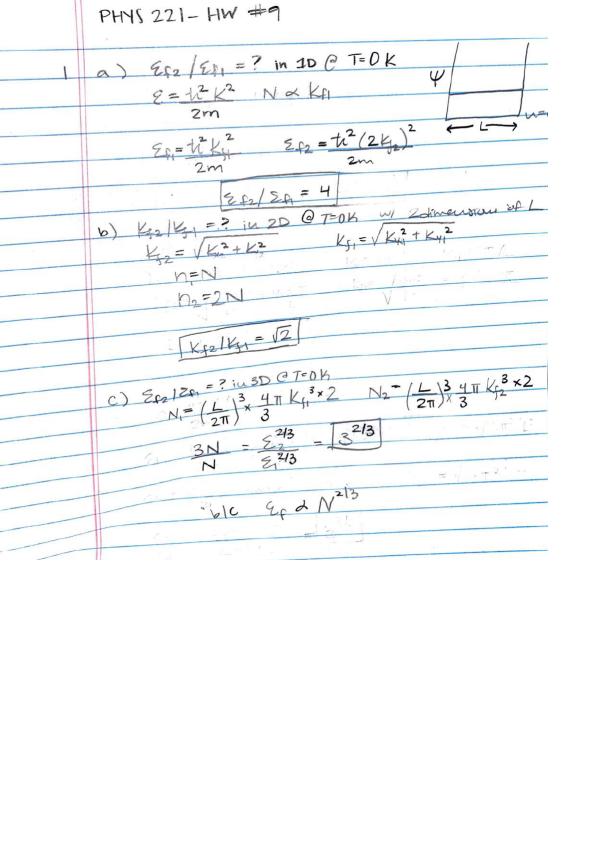 PHYS 221 - HW #9
1 a) εf2/εf1 = ? in 1D @ T=0K
ε = ħ²k²/2m N ∝ kf1
Ψ
L
εf1 = ħ²kf1²/2m εf2 = ħ²(2kf2)²/2m
εf2/εf1 = 4
b) Kf2/Kf1 = ? in 2D @ T=0K w/ 2 dimensions of L
Kf2 = √K²+K² Kf1 = √Kx1²+Ky1²
n1=N
n2=2N
Kf2/Kf1 = √2
c) εf2/εf1 = ? in 3D @ T=0K
N1 = (L/2π)³ × 4π/3 Kf1³ × 2 N2 = (L/2π)³ × 4π/3 Kf2³ × 2
3N/N = ε2^2/3/ε1^2/3 = 3^2/3
b/c εf ∝ N^2/3